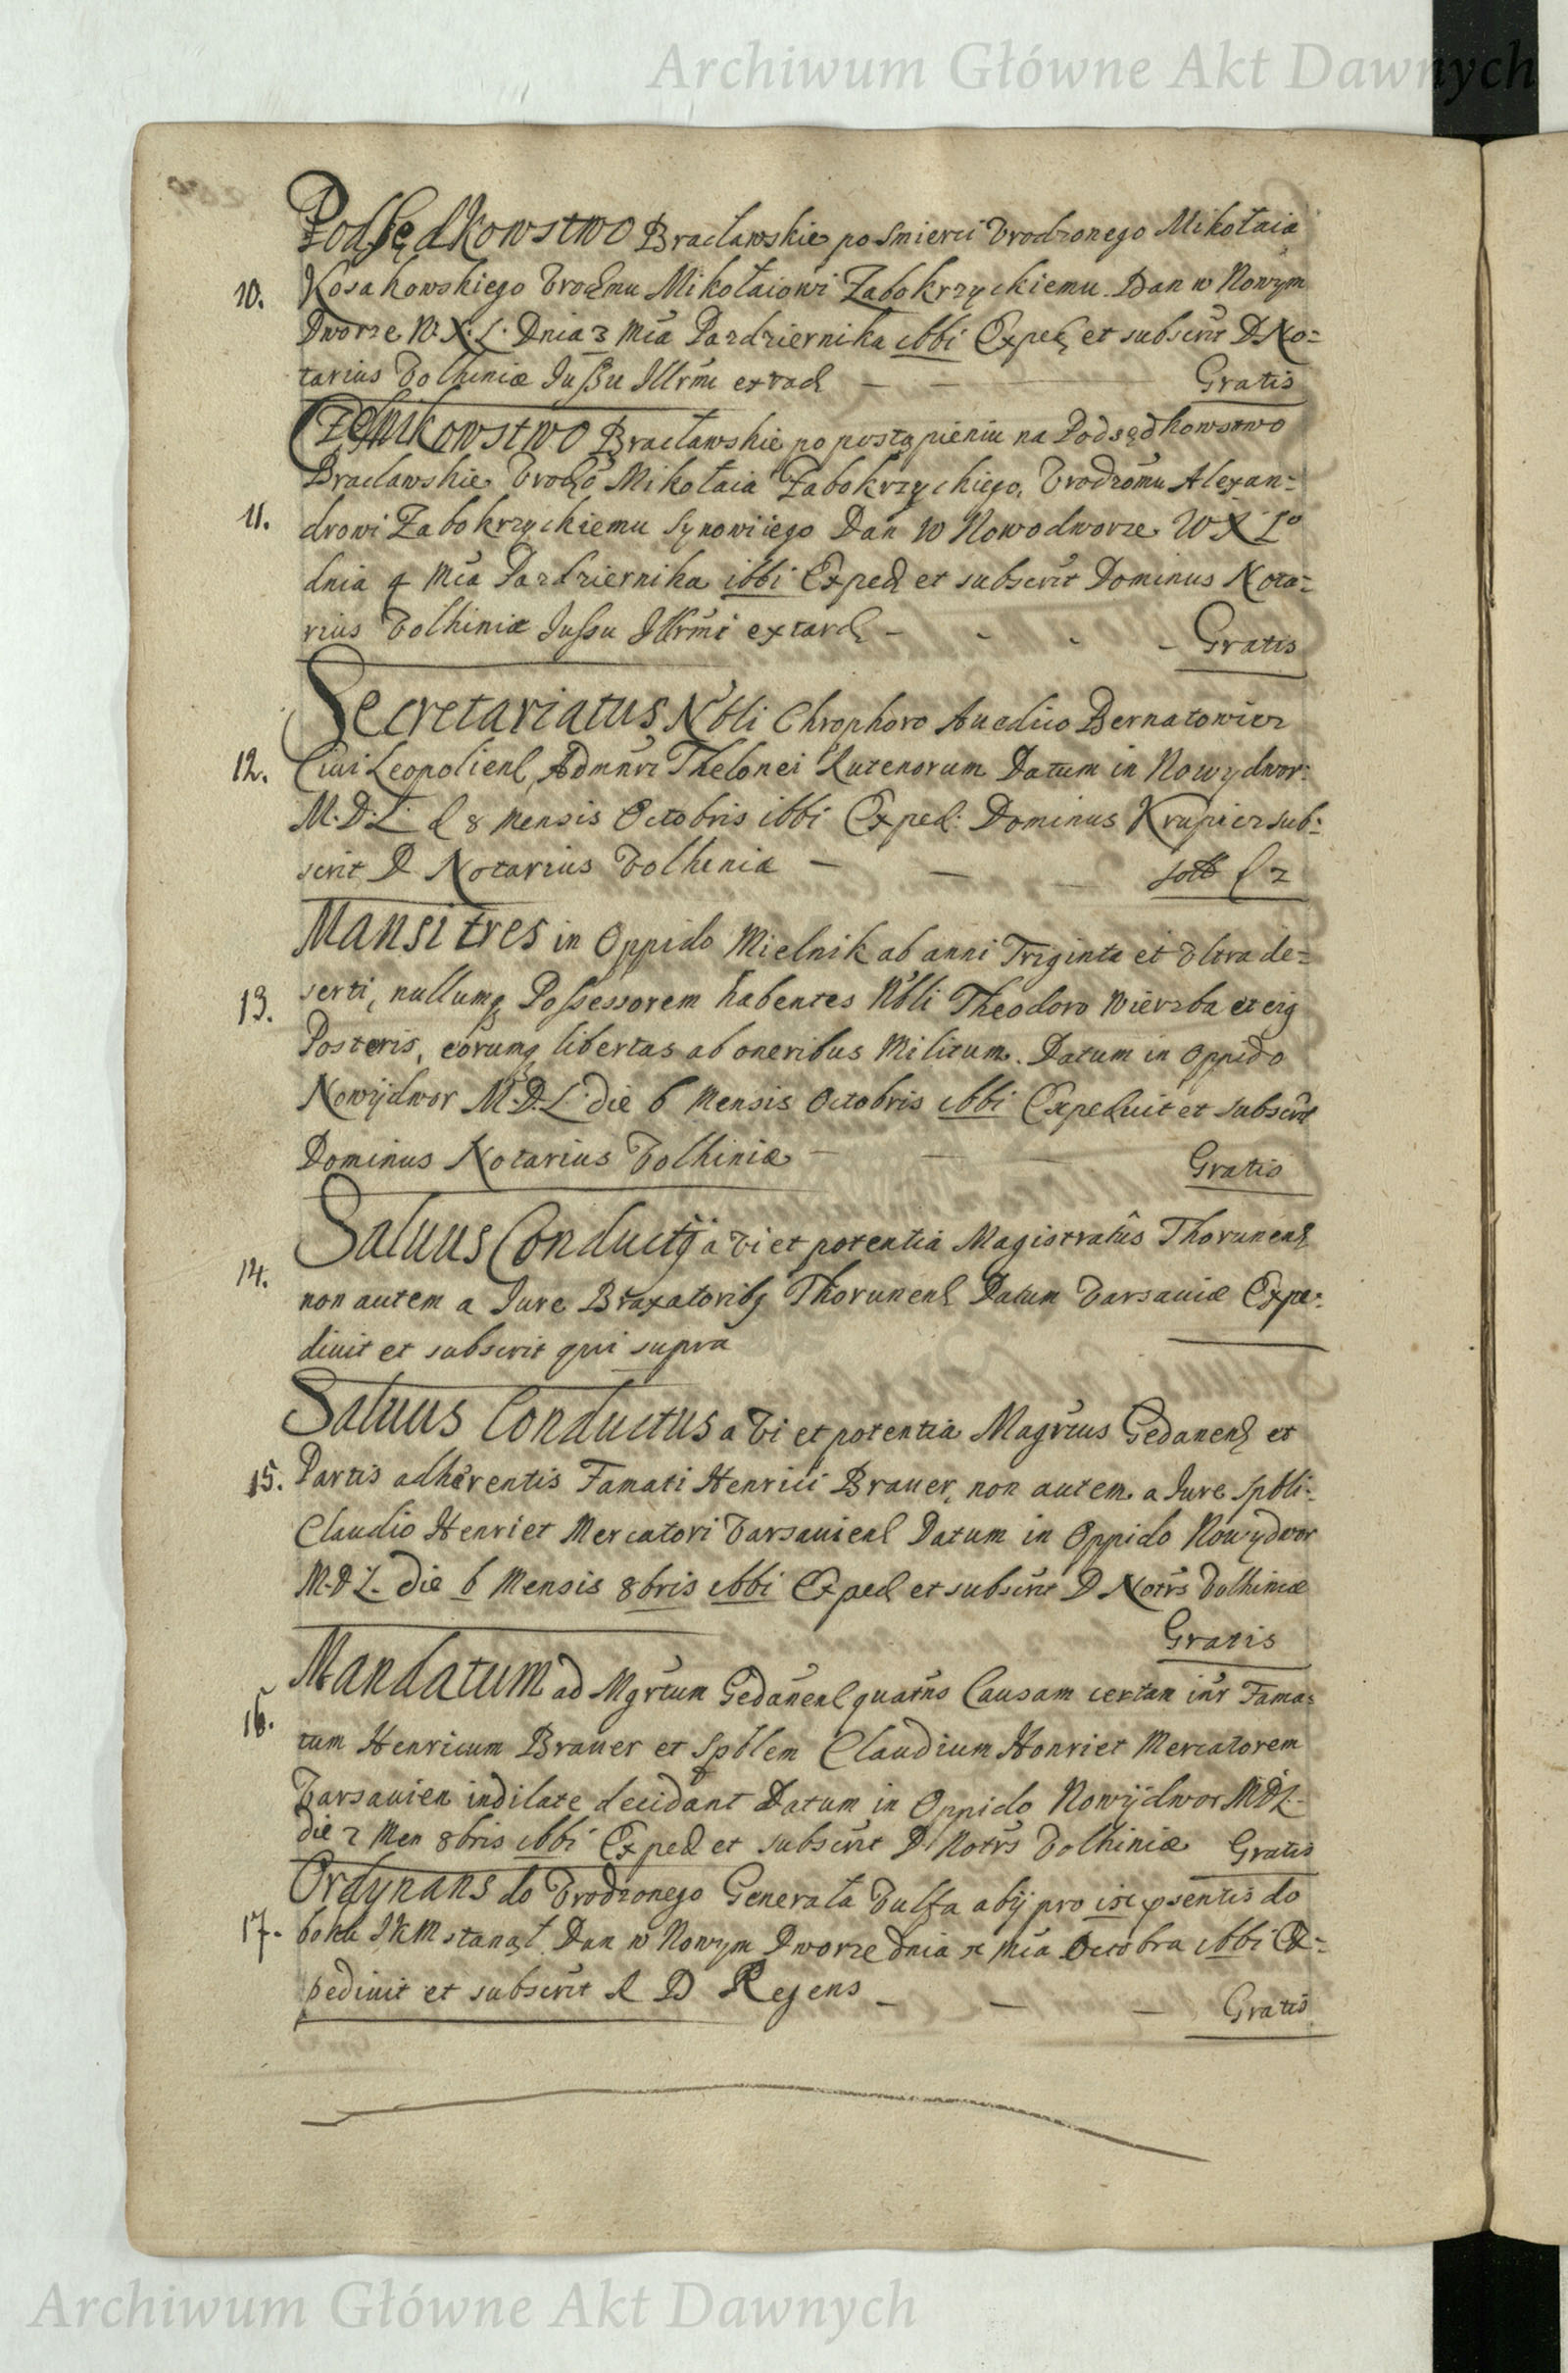 Archiwum Główne Akt Dawnych
Podsędkowstwo Bracławskie po śmierci Vrodzonego Mikołaia
10. Kosakowskiego Vrodzmu Mikołaiowi Zabokrzyckiemu. Dan w Nowym
Dworze W. X. L. Dnia 3 Mca Pazdziernika ibbi Exped et subscrit D. No=
tarius Volhiniæ Jussu Illrmi extrad Gratis
Czesnikowstwo Bracławskie po postąpieniu na Podsędkowstwo
Braclawskie Vrodzo Mikołaia Zabokrzyckiego, Vrodzomu Alexan=
11. drowi Zabokrzyckiemu Synowi iego Dan w Nowodworze W X Lo
dnia 4 Mca Pazdziernika ibbi Exped et subscrit Dominus Nota=
rius Volhiniæ Jussu Illrmi extard - - - - Gratis
Secretariatus Nbli Chrophoro Auedico Bernatowicz
12. Ciui Leopoliens, Admnri Thelonei Rutenorum Datum in Nowydwor:
M. D. L. d 8 Mensis Octobris ibbi Exped: Dominus Krupicz sub:
scrit D Notarius Volhiniæ —
Mansi tres in Oppido Mielnik ab anni Triginta et Vltra de=
13. serti, nullumq Possessorem habentes Nbli Theodoro Wierzba et eig
Posteris, eorumq libertas ab oneribus Militum. Datum in Oppido
Nowijdwor M. D. L. die 6 Mensis Octobris ibbi Expediuit et subscrit
Dominus Notarius Volhiniæ — Gratis
Saluus Conductq a Vi et potentia Magistratûs Thorunens
14. non autem a Jure Braxatoribq Thorunens Datum Varsauiæ Expe:
diuit et subscrit qui supra
Saluus Conductus a Vi et potentia Magrtus Gedanens et
15. Partis adhærentis Famati Henrici Brauer, non autem a Jure Spbli:
Claudio Henriet Mercatori Varsauiens Datum in Oppido Nowydwor
M. D L. die 6 Mensis 8bris ibbi Exped et subscrit D Notrs Volhiniæ
Gratis
Mandatum ad Mgrtum Gedanens quatns Causam certam intr Fama=
16. tum Henricum Brauer et Spblem Claudium Henriet Mercatorem
Varsauien indilate decidant Datum in Oppido Nowijdwor M. D L.
die 7 Men 8bris ibbi Exped et subscrit D Notrs Volhiniæ Gratis
Ordynans do Vrodzonego Generała Vulfa abij pro psentis do
17. boku JKM stanął. Dan w Nowym Dworze dnia Mca Octobra ibbi Ex=
pediuit et subscrit R D Regens — — — Gratis
Archiwum Główne Akt Dawnych